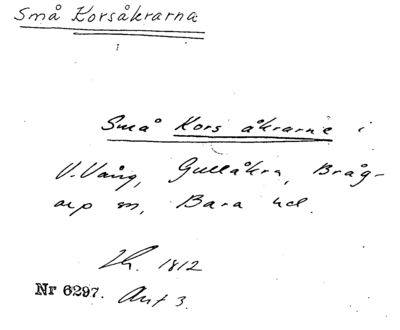 Små Korsåkrarna
Små Kors åkrarne i
V. Vång, Gullåkra, Bråg-
arp sn, Bara hd.
Lh. 1812
Nr 6297. Akt 3.